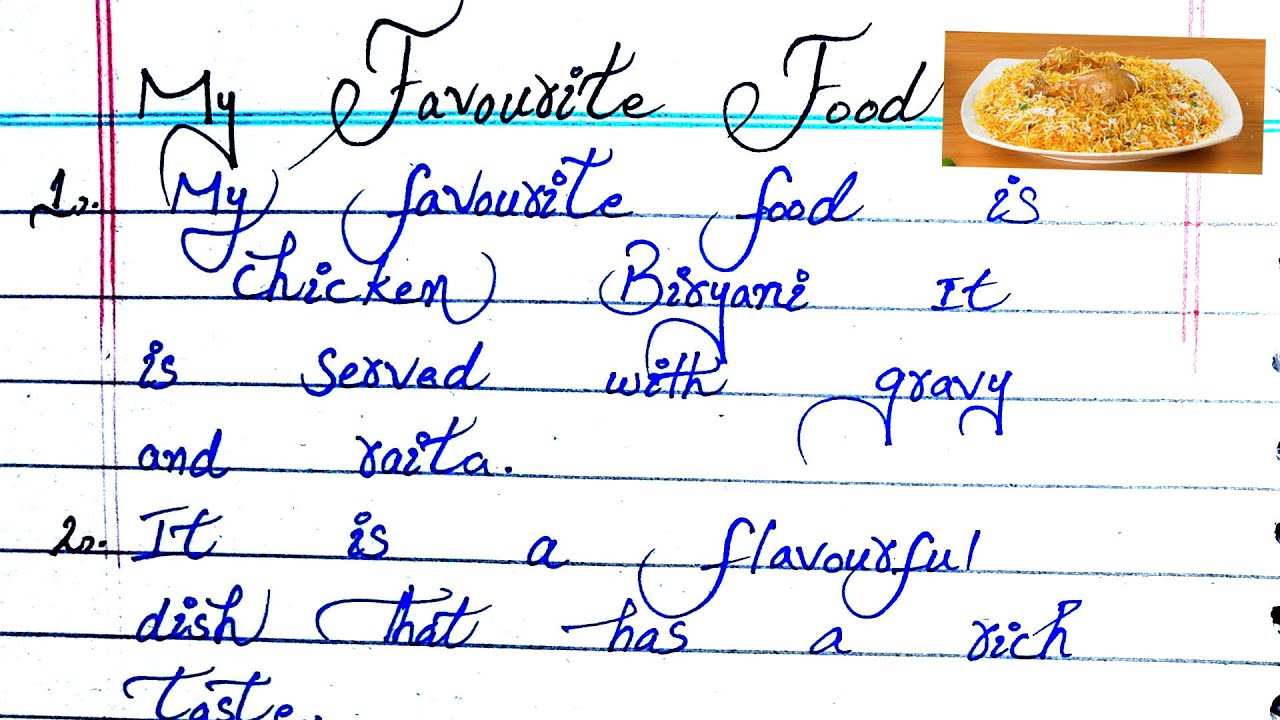 My Favourite Food
1. My favourite food is
chicken Biryani It
is served with gravy
and raita.
2. It is a flavourful
dish that has a rich
taste.